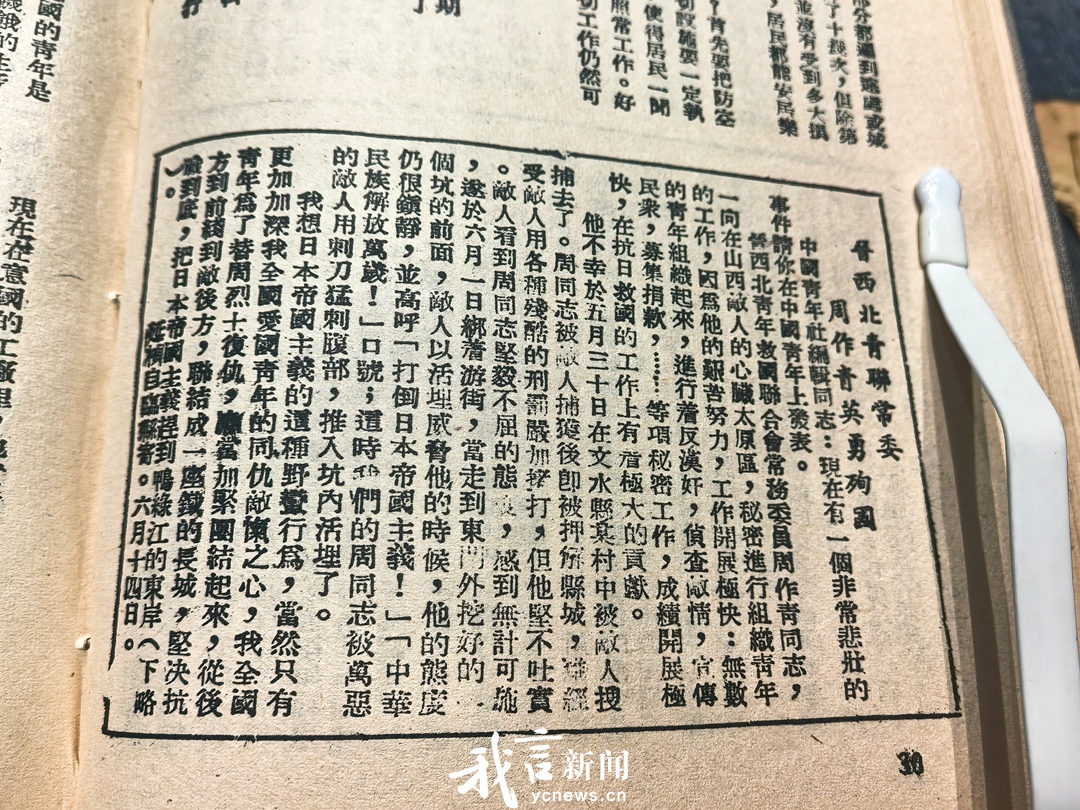 部分都遷到遠處或城
了十幾次，但除第
並沒有受到多大損
，居民都能安居樂
首先要把防空
切設施要一定執
使得居民一聞
照常工作。好
切工作仍然可
期
了
行
國的青年是
現在在意國的工廠里
晉西北青聯常委
周作青英勇殉國
中國青年社編輯同志：現在有一個非常悲壯的
事件請你在中國青年上發表。
晉西北青年救國聯合會常務委員周作青同志，
一向在山西敵人的心臟太原區，秘密進行組織青年
的工作，因爲他的艱苦努力，工作開展極快：無數
的青年組織起來，進行着反漢奸，偵查敵情，宣傳
民衆，募集捐款，……等項秘密工作，成績開展極
快，在抗日救國的工作上有着極大的貢獻。
他不幸於五月三十日在文水縣某村中被敵人搜
捕去了。周同志被敵人捕獲後卽被押解縣城，雖經
受敵人用各種殘酷的刑罰嚴加拷打，但他堅不吐實
。敵人看到周同志堅毅不屈的態度，感到無計可施
，遂於六月一日綁着游街，當走到東門外挖好的一
個坑的前面，敵人以活埋威脅他的時候，他的態度
仍很鎮靜，並高呼「打倒日本帝國主義！」「中華
民族解放萬歲！」口號；這時我們的周同志被萬惡
的敵人用刺刀猛刺腹部，推入坑內活埋了。
我想日本帝國主義的這種野蠻行爲，當然只有
更加加深我全國愛國青年的同仇敵愾之心，我全國
青年爲了替周烈士復仇，應當加緊團結起來，從後
方到前綫到敵後方，聯結成一座鐵的長城，堅決抗
戰到底，把日本帝國主義趕到鴨綠江的東岸（下略
）。
自臨縣寄。六月十四日。
30
我言新闻
ycnews.cn